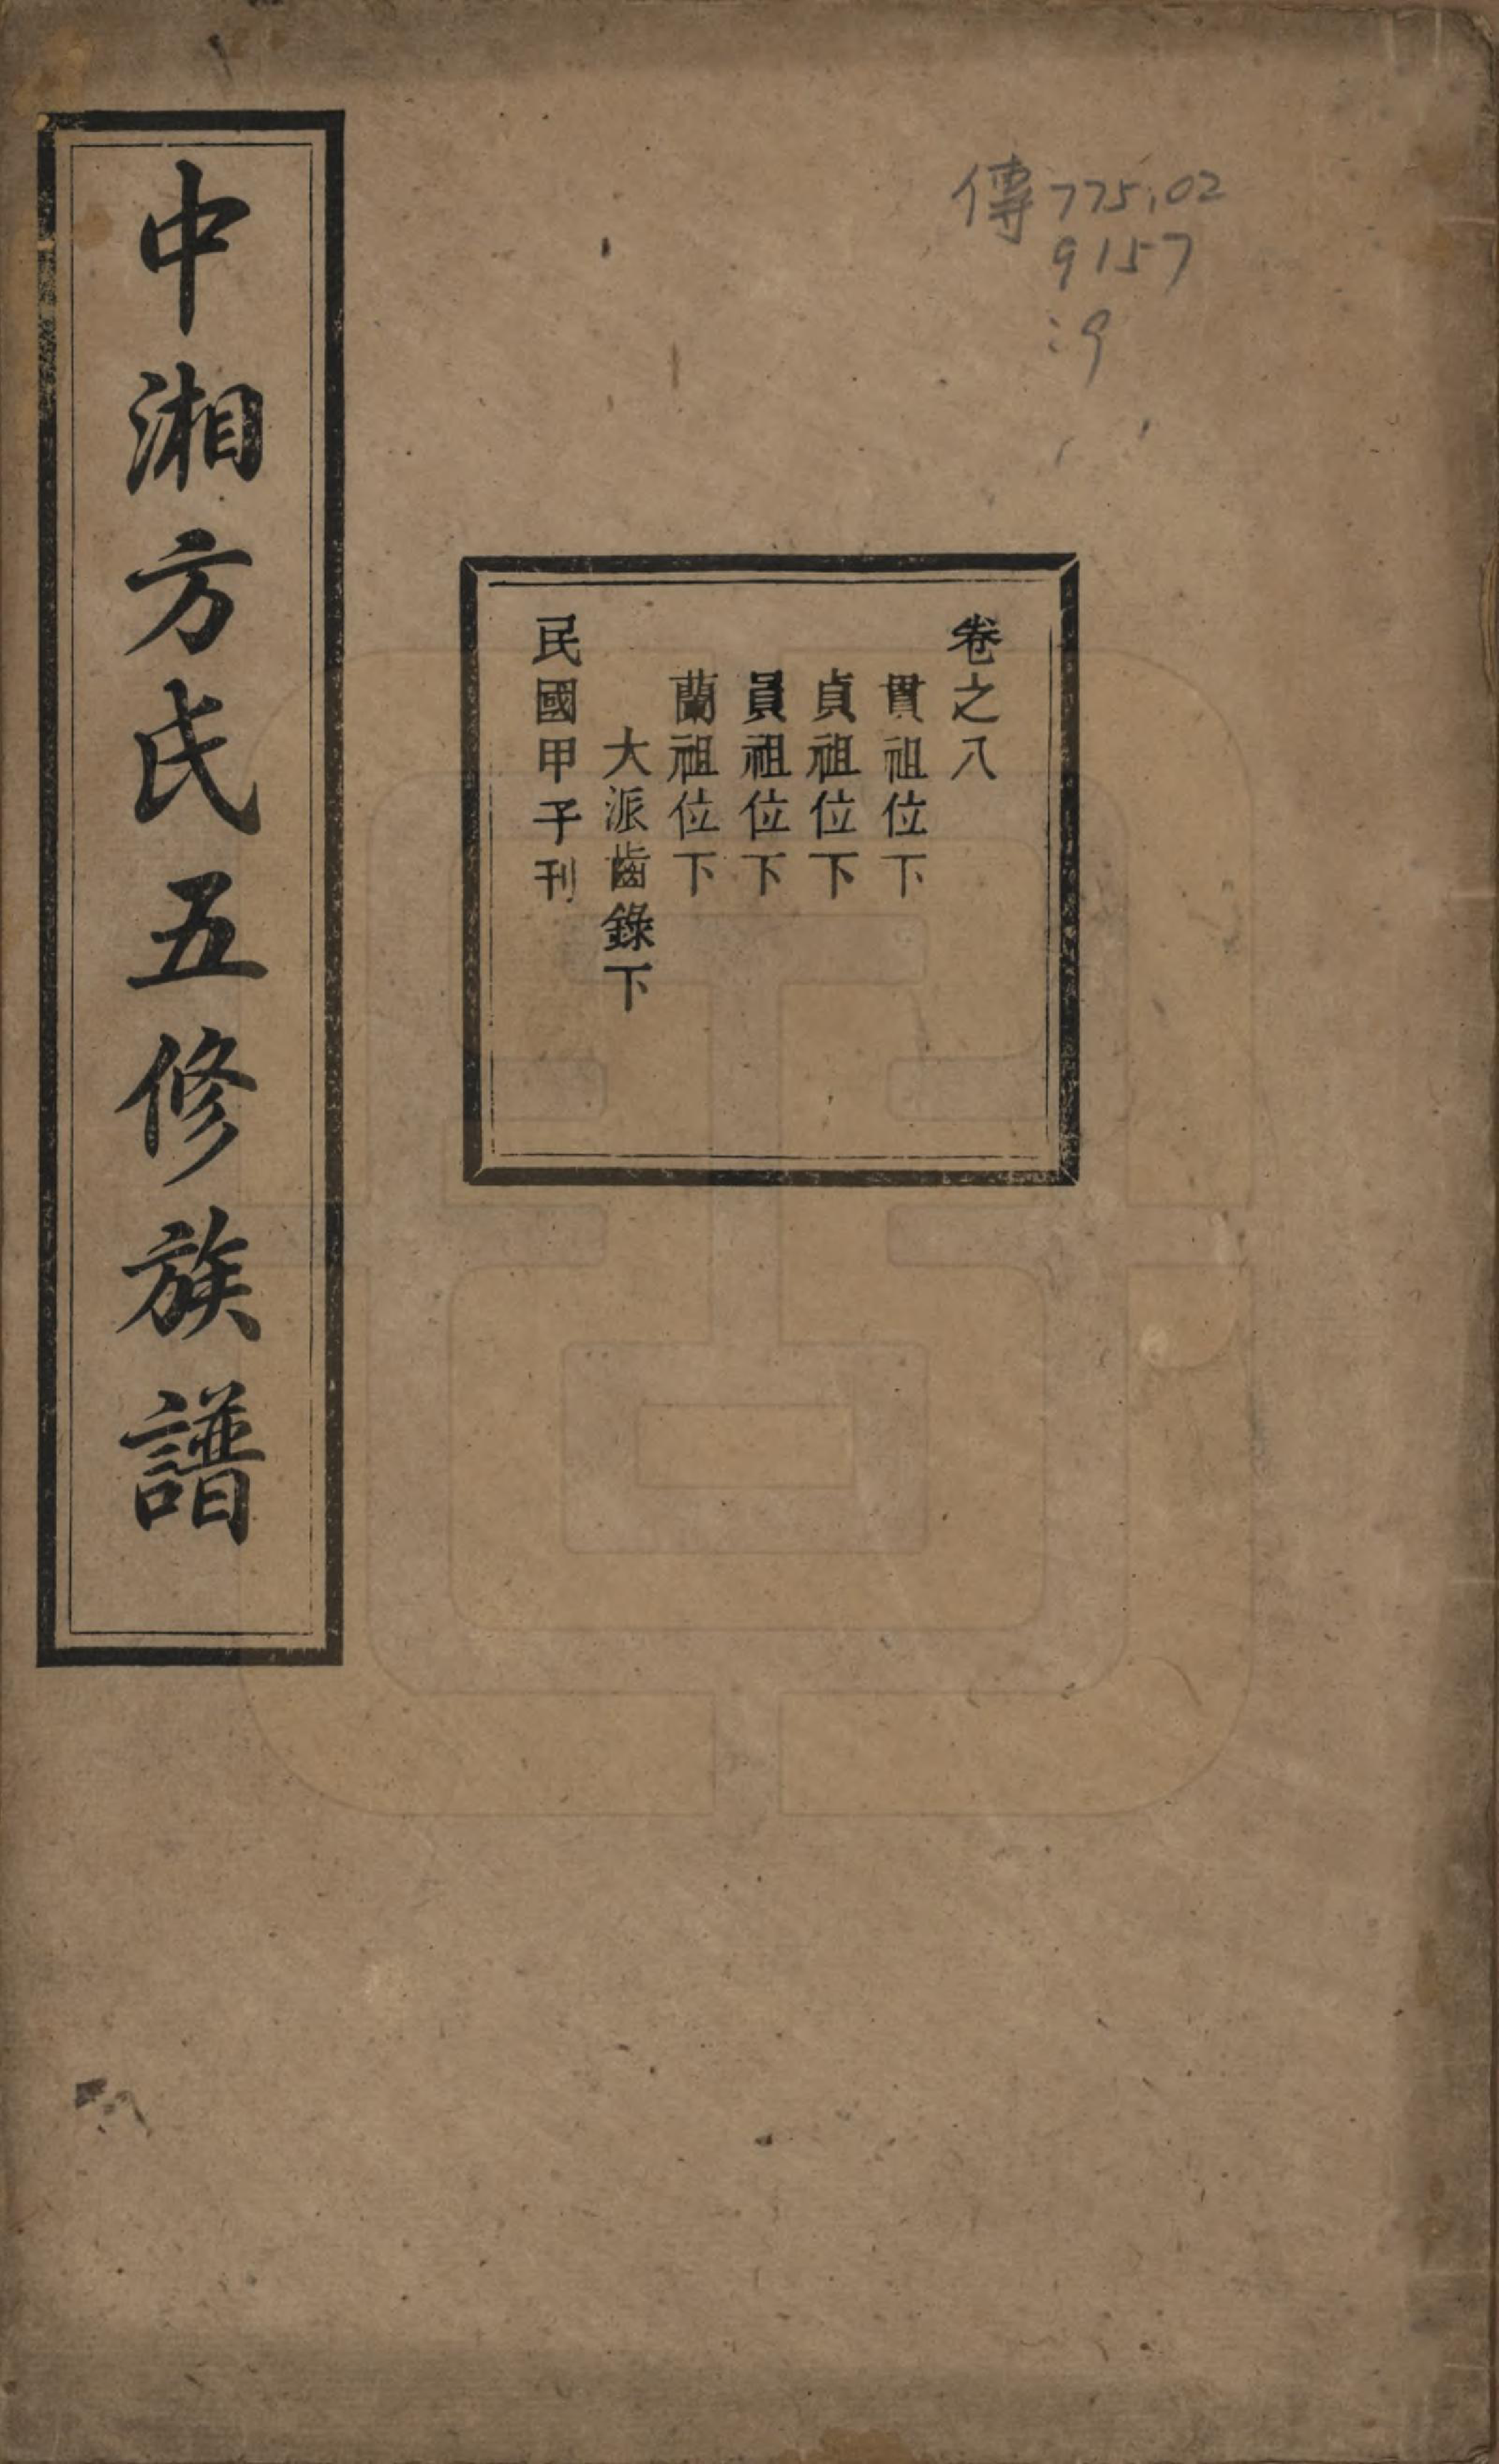 傳775.02
9157
:9
卷之八
貫祖位下
貞祖位下
員祖位下
蘭祖位下
大派齒錄下
民國甲子刊
中湘方氏五修族譜